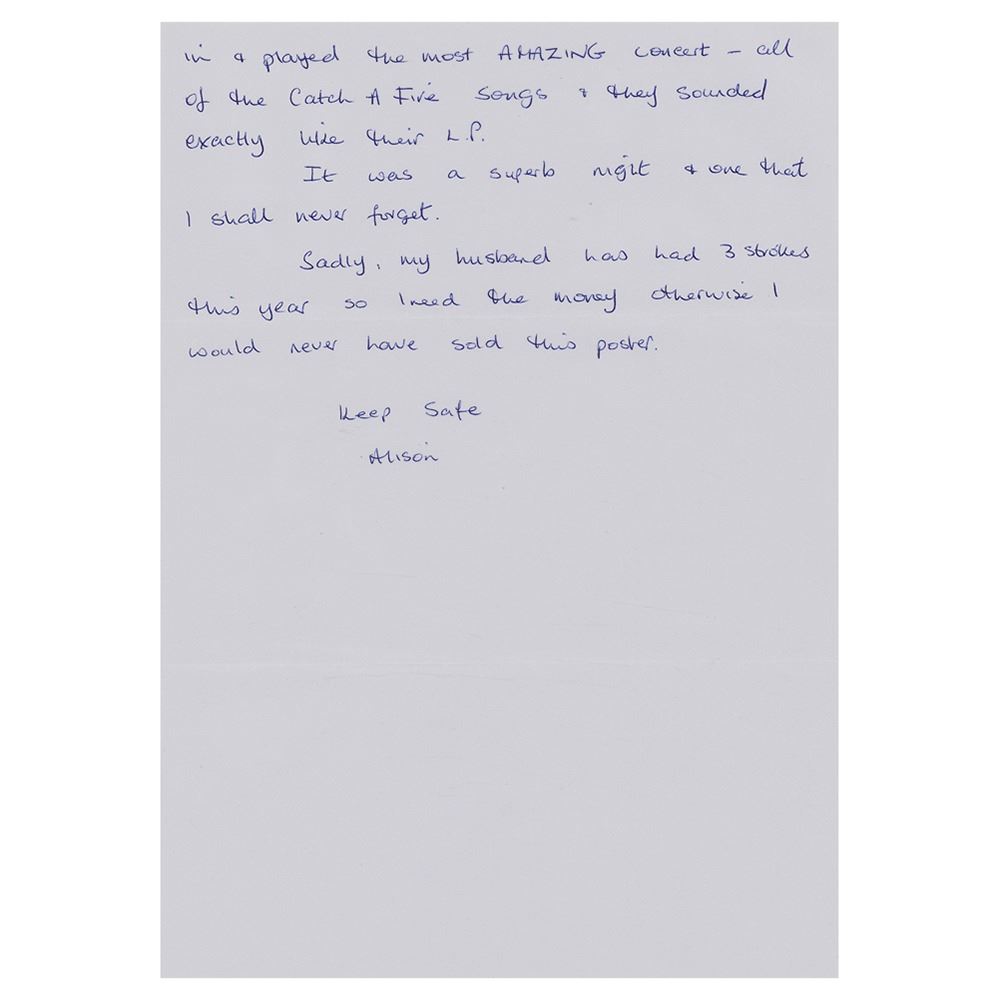 in & played the most AMAZING concert - all
of the Catch A Fire songs & they sounded
exactly like their L.P.
It was a superb night & one that
I shall never forget.
Sadly, my husband has had 3 strokes
this year so I need the money otherwise I
would never have sold this poster.
Keep Safe
Alison